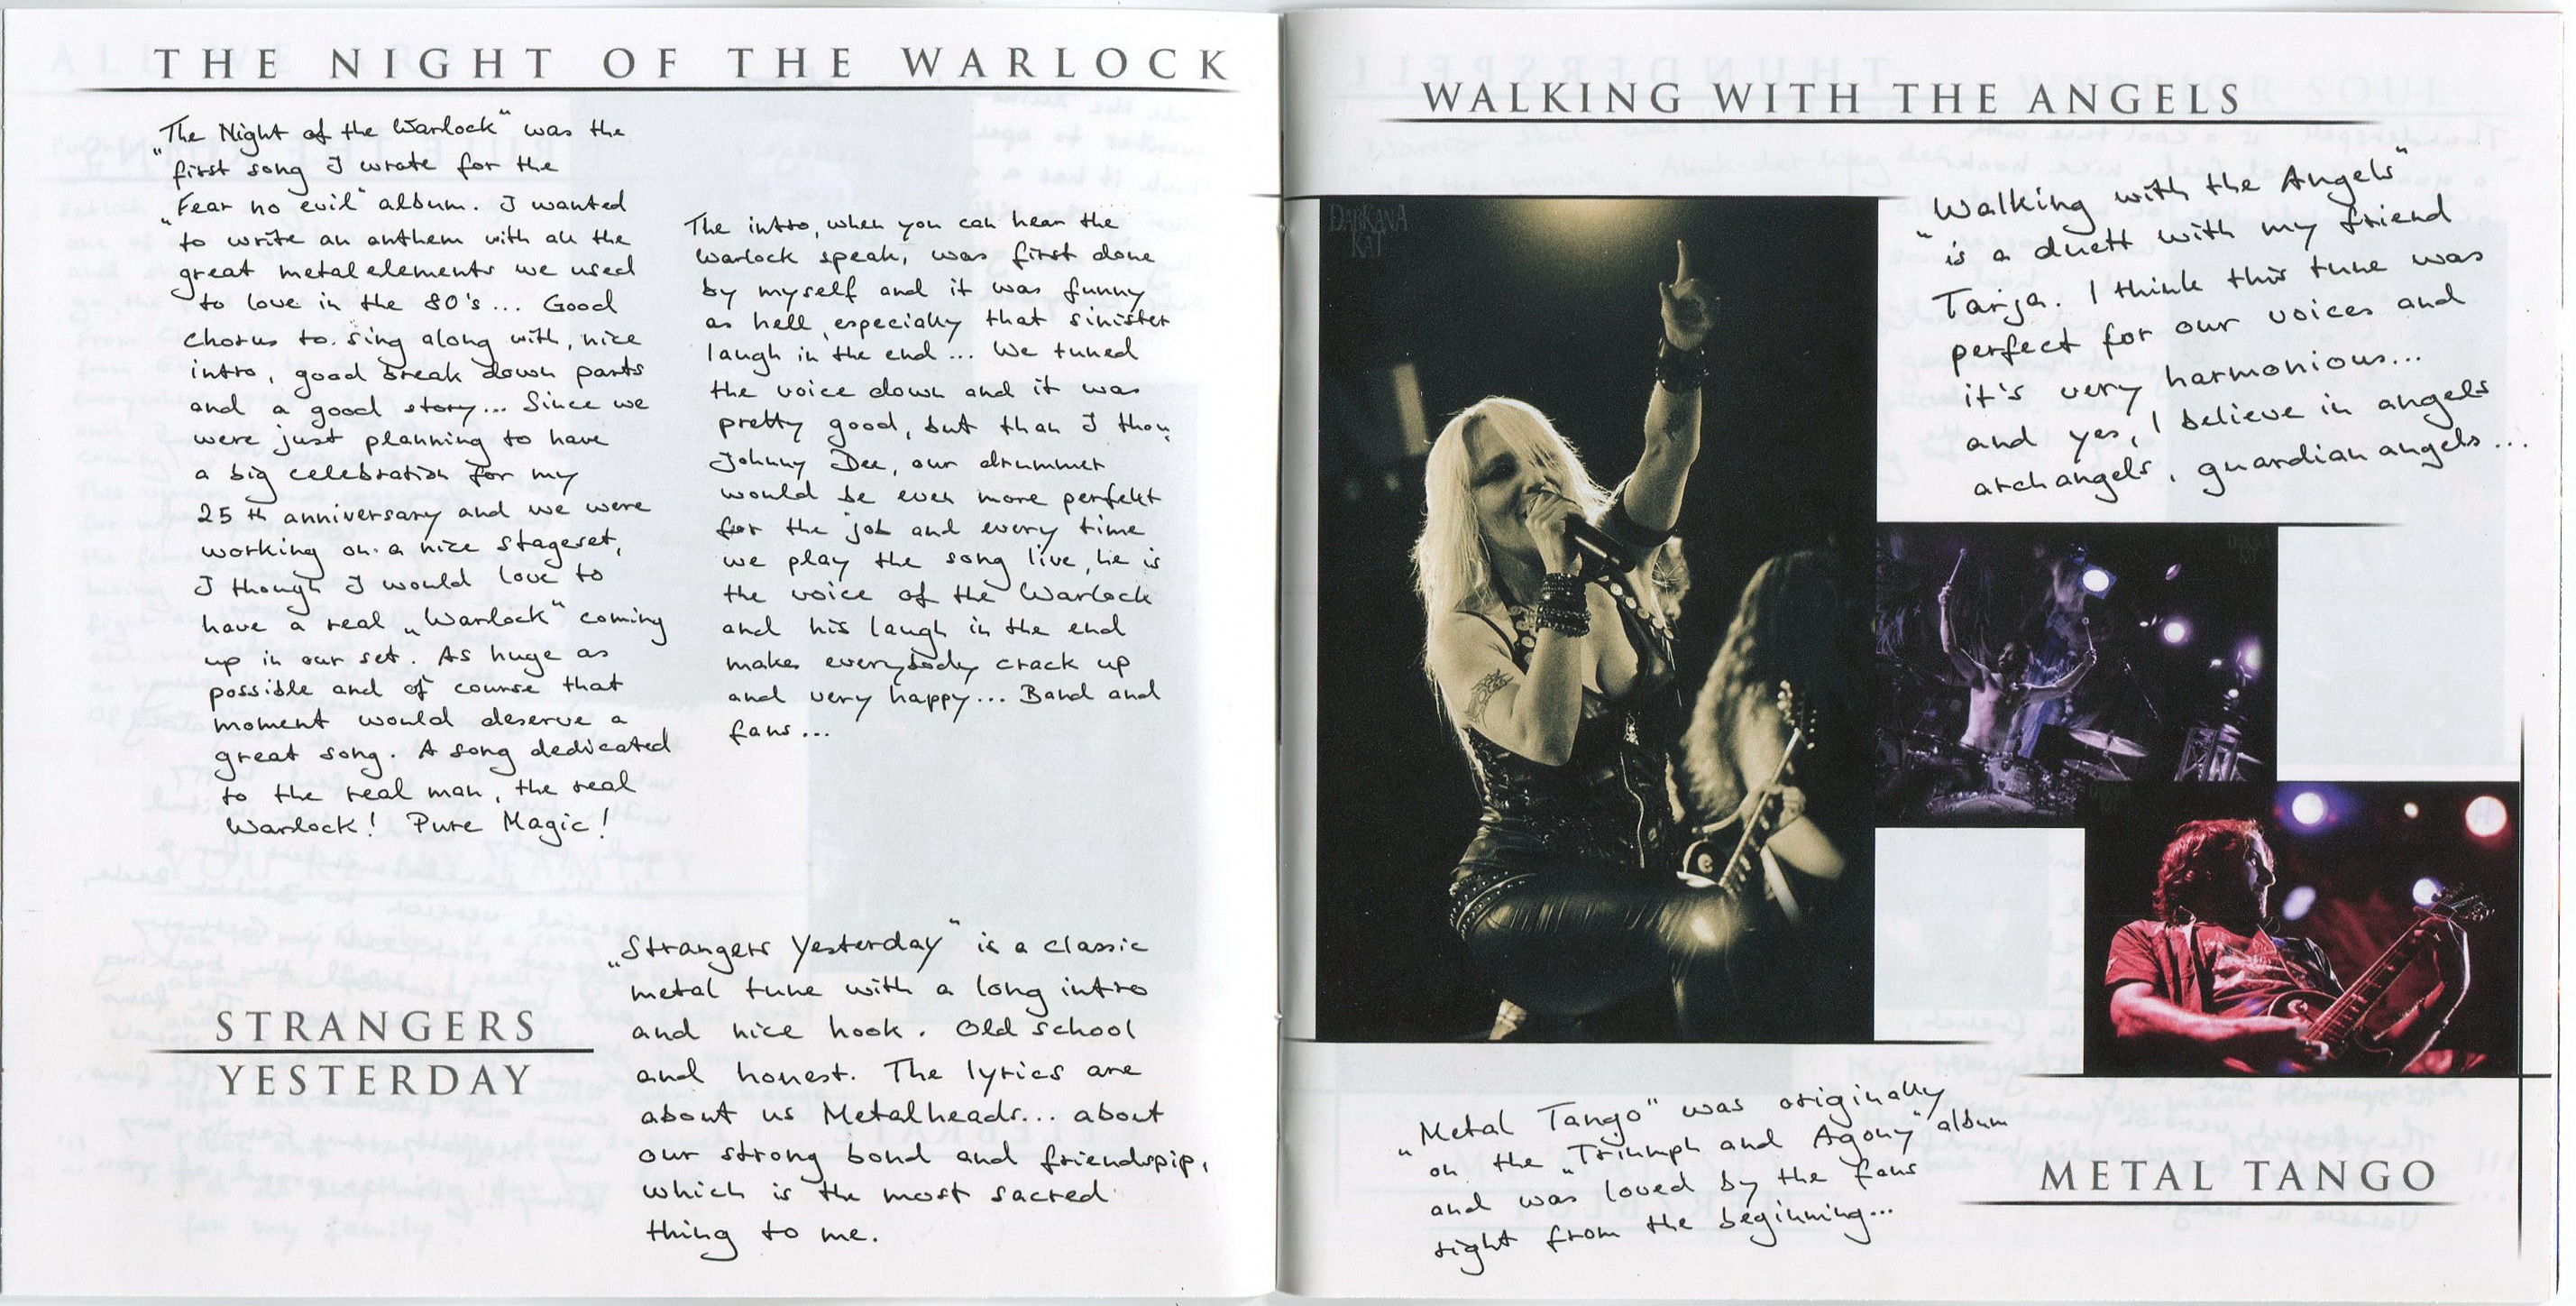 THE NIGHT OF THE WARLOCK
„The Night of the Warlock“ was the
first song I wrote for the
„Fear no evil“ album. I wanted
to write an anthem with all the
great metal elements we used
to love in the 80's... Good
chorus to sing along with, nice
intro, good break down parts
and a good story... Since we
were just planning to have
a big celebration for my
25th anniversary and we were
working on a nice stageset,
I though I would love to
have a real „Warlock“ coming
up in our set. As huge as
possible and of course that
moment would deserve a
great song. A song dedicated
to the real man, the real
Warlock! Pure Magic!
The intro, when you can hear the
Warlock speak, was first done
by myself and it was funny
as hell, especially that sinister
laugh in the end... We tuned
the voice down and it was
pretty good, but than I thou
Johnny Dee, our drummer
would be even more perfekt
for the job and every time
we play the song live, he is
the voice of the Warlock
and his laugh in the end
makes everybody crack up
and very happy... Band and
fans...
STRANGERS
YESTERDAY
„Strangers Yesterday“ is a classic
metal tune with a long intro
and nice hook. Old school
and honest. The lyrics are
about us Metalheads... about
our strong bond and friendspip,
which is the most sacred
thing to me.
WALKING WITH THE ANGELS
„Walking with the Angels“
is a duett with my friend
Tarja. I think this tune was
perfect for our voices and
it's very harmonious...
and yes, I believe in angels
archangels, guardian angels...
DARKANA
KAT
„Metal Tango“ was originally
on the „Triumph and Agony“ album
and was loved by the fans
right from the beginning...
METAL TANGO